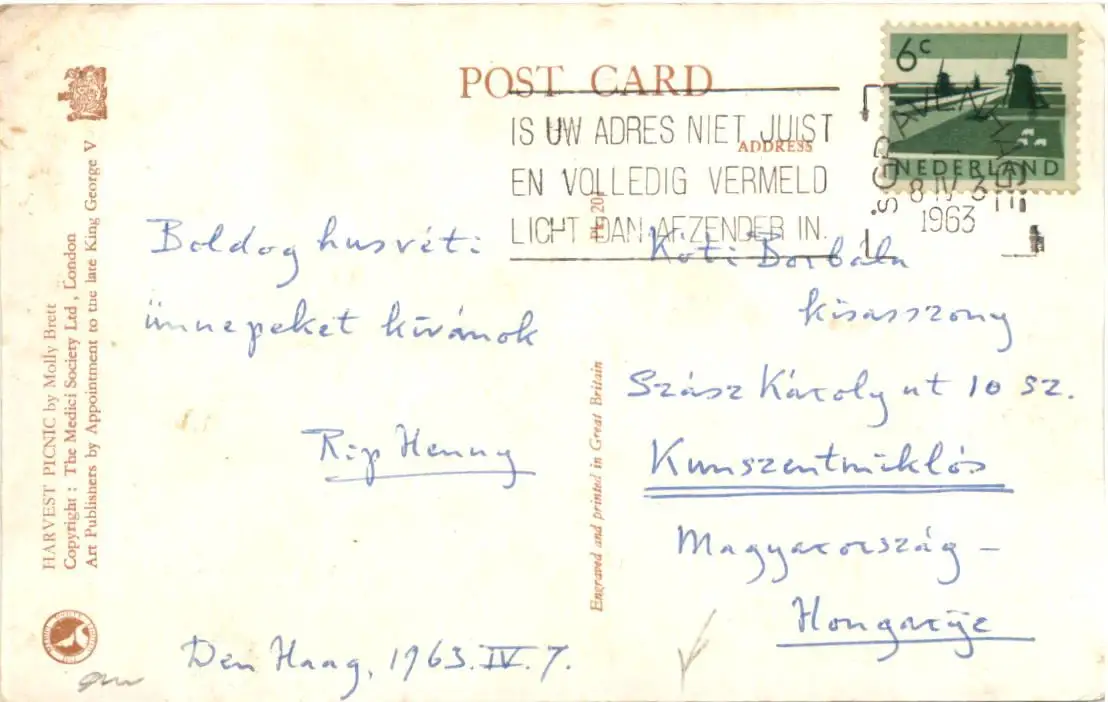 POST CARD
ADDRESS
IS UW ADRES NIET JUIST
EN VOLLEDIG VERMELD
LICHT DAN AFZENDER IN.
6c
NEDERLAND
'S GRAVENHAGE
8 IV 63
1963
Boldog husvéti
ünnepeket kívánok
Rip Henny
Den Haag, 1963.IV.7.
Koti Borbála
kisasszony
Szász Károly ut 10 sz.
Kunszentmiklós
Magyarország –
Hongarije
Pk. 20
Engraved and printed in Great Britain
HARVEST PICNIC by Molly Brett
Copyright : The Medici Society Ltd , London
Art Publishers by Appointment to the late King George V